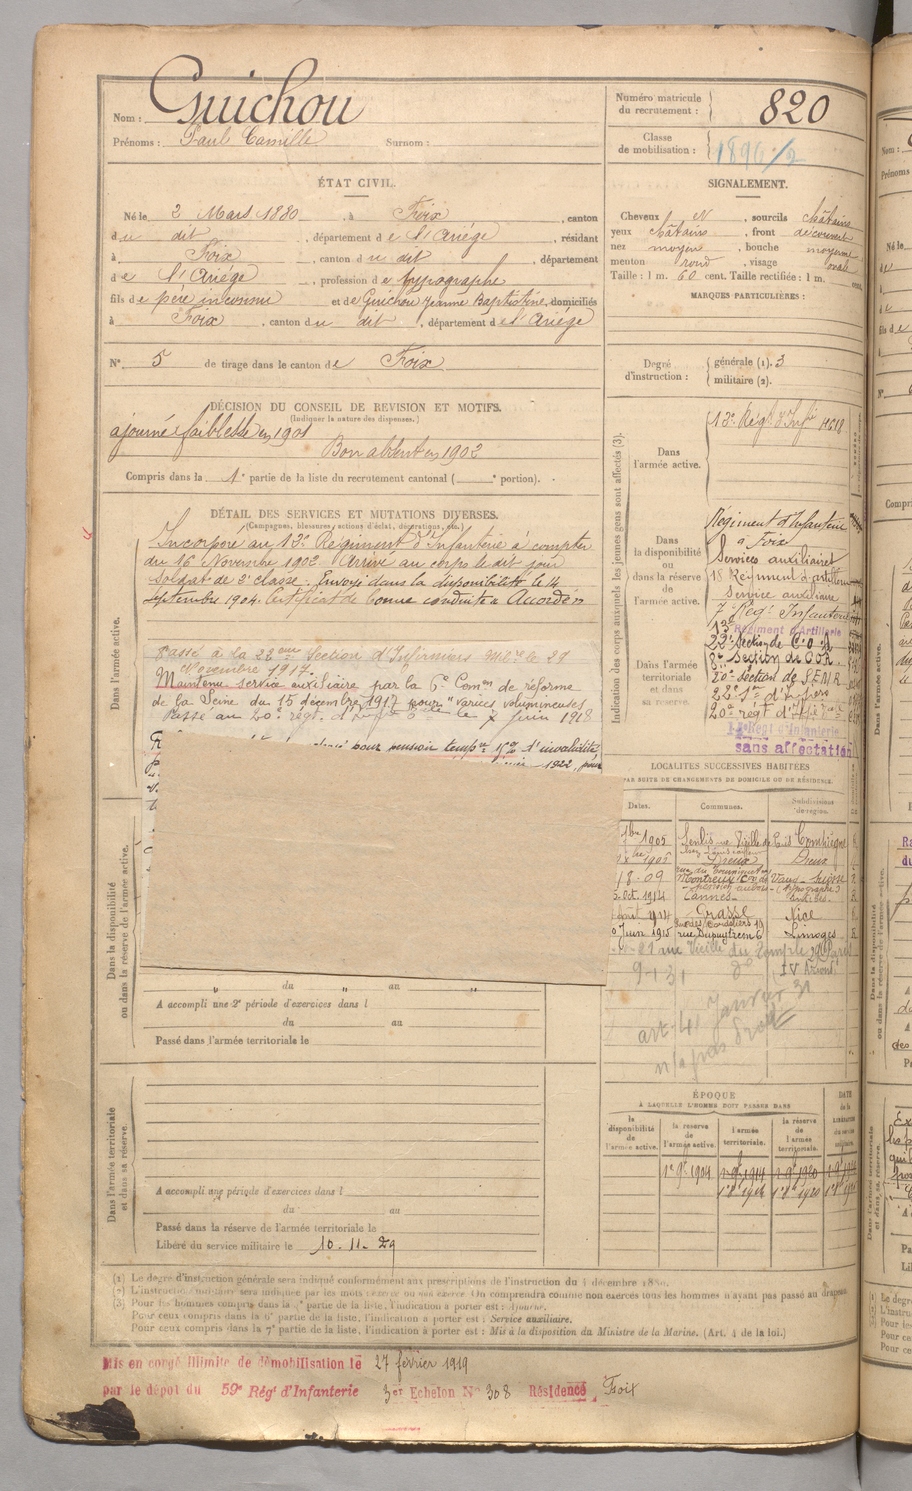 Nom : Guichou
Prénoms : Paul Camille Surnom :
Numéro matricule du recrutement : 820
Classe de mobilisation : 1896/2
ÉTAT CIVIL.
Né le 2 Mars 1880, à Foix, canton
du dit, département de l'Ariège, résidant
à Foix, canton du dit, département
de l'Ariège, profession de typographe
fils de père inconnu et de Guichou Jeanne Baptistine, domiciliés
à Foix, canton du dit, département de l'Ariège
N° 5 de tirage dans le canton de Foix
SIGNALEMENT.
Cheveux N, sourcils châtains
yeux châtains, front découvert
nez moyen, bouche moyenne
menton rond, visage ovale
Taille : 1 m. 60 cent. Taille rectifiée : 1 m. cent.
MARQUES PARTICULIÈRES :
Degré d'instruction : générale (1). 3
militaire (2).
DÉCISION DU CONSEIL DE REVISION ET MOTIFS.
(Indiquer la nature des dispenses.)
ajourné faiblesse en 1901
Bon absent en 1902
Compris dans la 1e partie de la liste du recrutement cantonal ( e portion).
DÉTAIL DES SERVICES ET MUTATIONS DIVERSES.
(Campagnes, blessures, actions d'éclat, décorations, etc.)
Dans l'armée active.
Incorporé au 13e Régiment d'Infanterie à compter
du 16 Novembre 1902 Arrivé au corps le dit jour
soldat de 2e classe. Envoyé dans la disponibilité le 14
septembre 1904. Certificat de bonne conduite Accordé
Passé à la 22ème Section d'Infirmiers Milres le 29
Novembre 1917.
Maintenu service auxiliaire par la 6e Comon de réforme
de la Seine du 15 décembre 1917 pour "varices volumineuses
Passé au 20e régt. le 7 Juin 1918
pour pension tempre 15% d'invalidité
1922, pour
Indication des corps auxquels les jeunes gens sont affectés (3).
Dans l'armée active.
13e Régt d'Infie
Dans la disponibilité ou dans la réserve de l'armée active.
Régiment d'Infanterie
à Foix
Services auxiliaires
18 Régiment d'artillerie
Service auxiliaire
7e Régt Infanterie
Dans l'armée territoriale et dans sa réserve.
Régiment d'Artillerie
22e Section de C.O.A
8e Section du COA
20e Section de
20e régt d'
Régt d'Infanterie
sans affectation
LOCALITÉS SUCCESSIVES HABITÉES
PAR SUITE DE CHANGEMENTS DE DOMICILE OU DE RÉSIDENCE.
Dates. Communes. Subdivisions de région.
1905 Senlis Compiègne
1905 Dreux Dreux
8-09 Montreux Vaud-Suisse
oct. 1914 Cannes Antibes
1914 Grasse Nice
Juin 1915 rue Dupuytren 6 Limoges
rue Vieille du Temple Paris
9-1-31
art. 41 Janvier 31
n'a pas droit
Dans la disponibilité ou dans la réserve de l'armée active.
du au
A accompli une 2e période d'exercices dans l
du au
Passé dans l'armée territoriale le
Dans l'armée territoriale et dans sa réserve.
A accompli une période d'exercices dans l
du au
Passé dans la réserve de l'armée territoriale le
Libéré du service militaire le 10-11-29
ÉPOQUE
À LAQUELLE L'HOMME DOIT PASSER DANS
la disponibilité de l'armée active.
la réserve de l'armée active.
l'armée territoriale.
la réserve de l'armée territoriale.
DATE de la libération du service militaire.
(1) Le degré d'instruction générale sera indiqué conformément aux prescriptions de l'instruction du 4 décembre 1889.
(2) L'instruction militaire sera indiquée par les mots : exercé ou non exercé. On comprendra comme non exercés tous les hommes n'ayant pas passé au drapeau.
(3) Pour les hommes compris dans la partie de la liste, l'indication à porter est :
Pour ceux compris dans la 6e partie de la liste, l'indication à porter est : Service auxiliaire.
Pour ceux compris dans la 7e partie de la liste, l'indication à porter est : Mis à la disposition du Ministre de la Marine. (Art. 4 de la loi.)
Mis en congé illimité de démobilisation le 27 février 1919
par le dépôt du 59e Régt d'Infanterie 3er Echelon N° 308 Résidence Foix